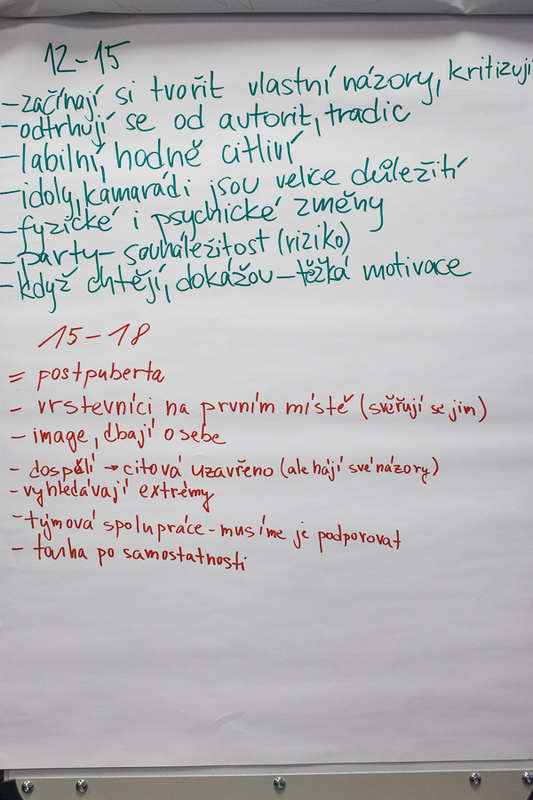 12-15
- začínají si tvořit vlastní názory, kritizují
- odtrhují se od autorit, tradic
- labilní, hodně citliví
- idoly, kamarádi jsou velice důležití
- fyzické i psychické změny
- party - souháležitost (riziko)
- když chtějí, dokážou - těžká motivace
15-18
= postpuberta
- vrstevníci na prvním místě (svěřují se jim)
- image, dbají o sebe
- dospělí → citová uzavřeno (ale hájí své názory)
- vyhledávají extrémy
- týmová spolupráce - musíme je podporovat
- touha po samostatnosti